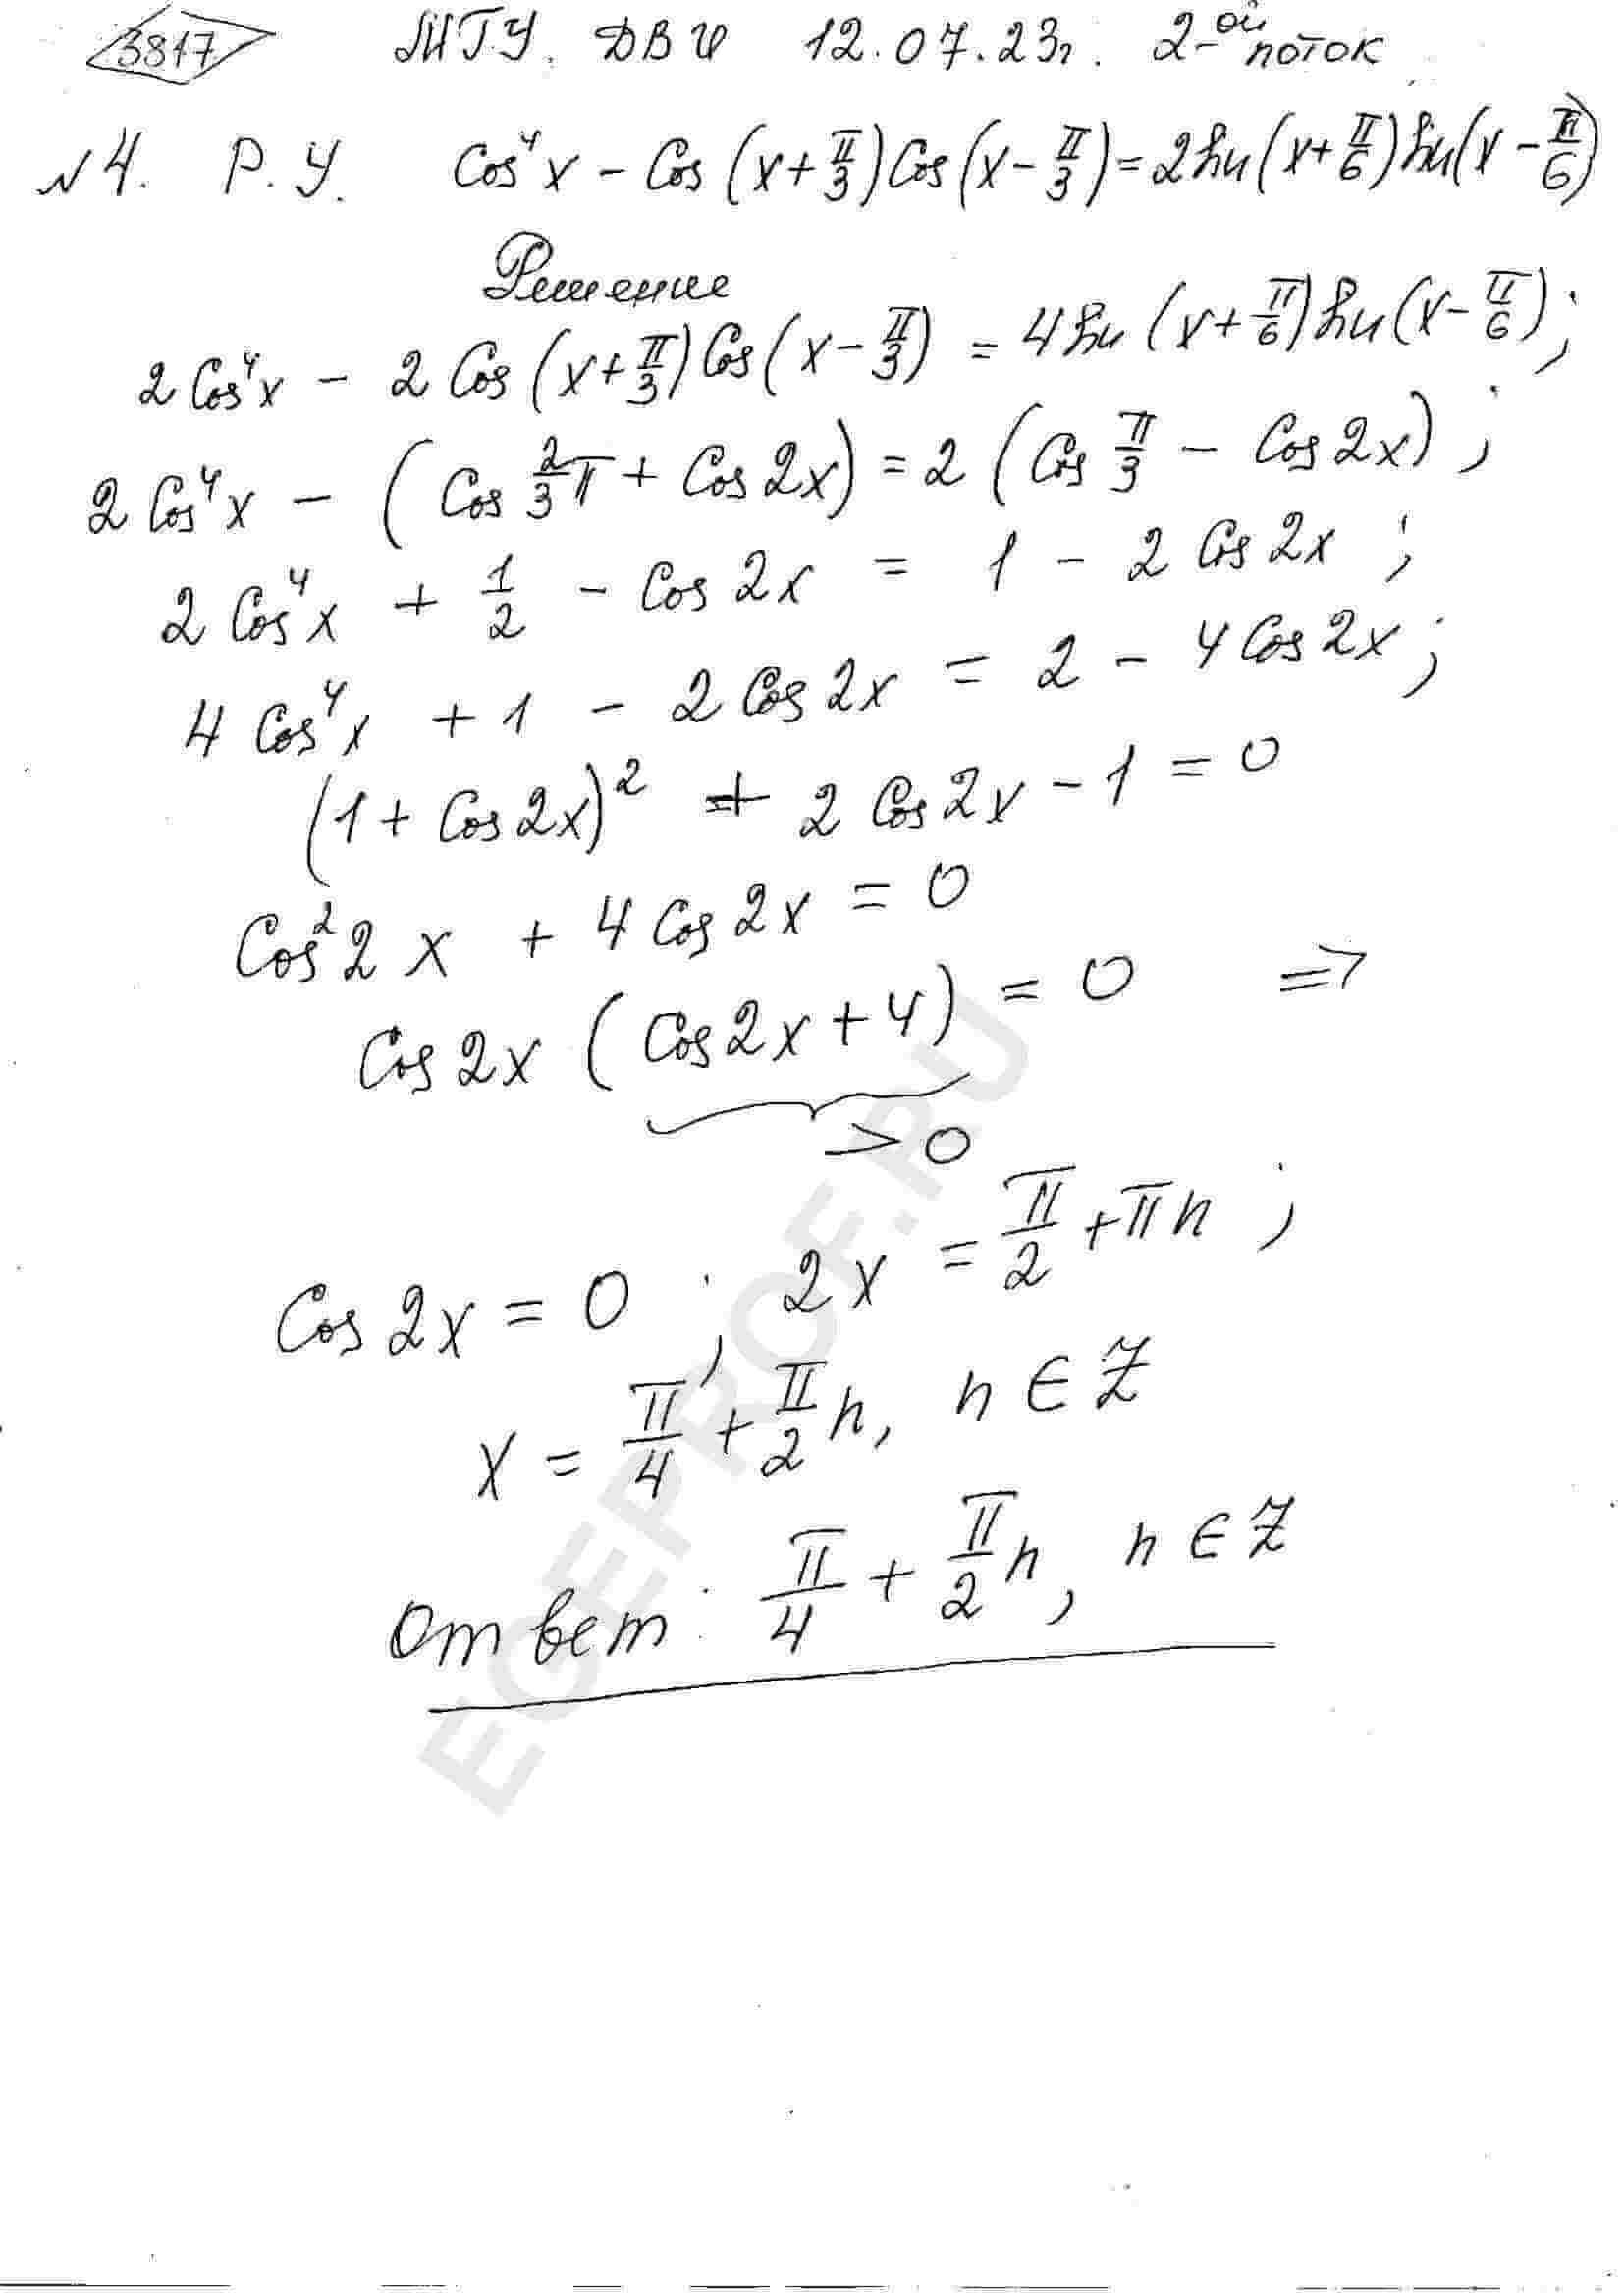 3817 МГУ. ДВИ 12.07.23г. 2-ой поток
№4. Р.У. Cos⁴x - Cos(x+π/3)Cos(x-π/3)=2sin(x+π/6)sin(x-π/6)
Решение
2Cos⁴x - 2Cos(x+π/3)Cos(x-π/3) = 4sin(x+π/6)sin(x-π/6);
2Cos⁴x - (Cos 2/3 π + Cos2x) = 2(Cos π/3 - Cos2x);
2Cos⁴x + 1/2 - Cos2x = 1 - 2Cos2x;
4Cos⁴x + 1 - 2Cos2x = 2 - 4Cos2x;
(1+Cos2x)² + 2Cos2x - 1 = 0
Cos²2x + 4Cos2x = 0
Cos2x (Cos2x+4) = 0 ⇒
>0
Cos2x = 0; 2x = π/2 + πn;
x = π/4 + π/2 n, n∈Z
Ответ: π/4 + π/2 n, n∈Z
EGEPROF.RU